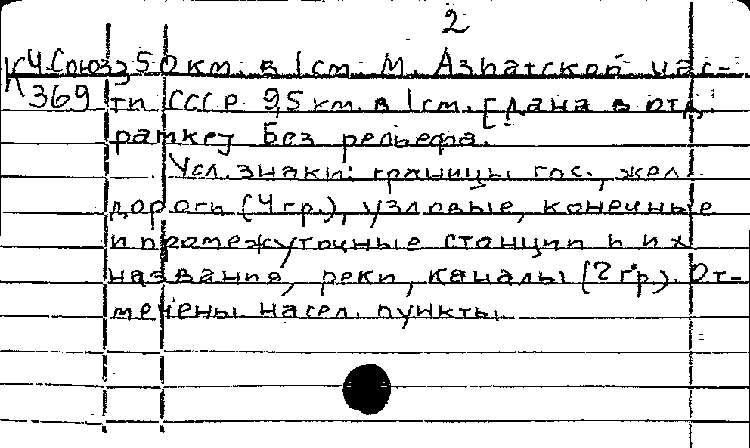 2
К 4. Союз 50 км. в 1 см. М. Азиатской час-
369 ти СССР 95 км. в 1 см. [Дана в отд.
рамке] Без рельефа.
Усл. знаки: границы гос., жел.
дороги (4 гр.), узловые, конечные
и промежуточные станции и их
названия, реки, каналы (2 гр.). От-
мечены насел. пункты.